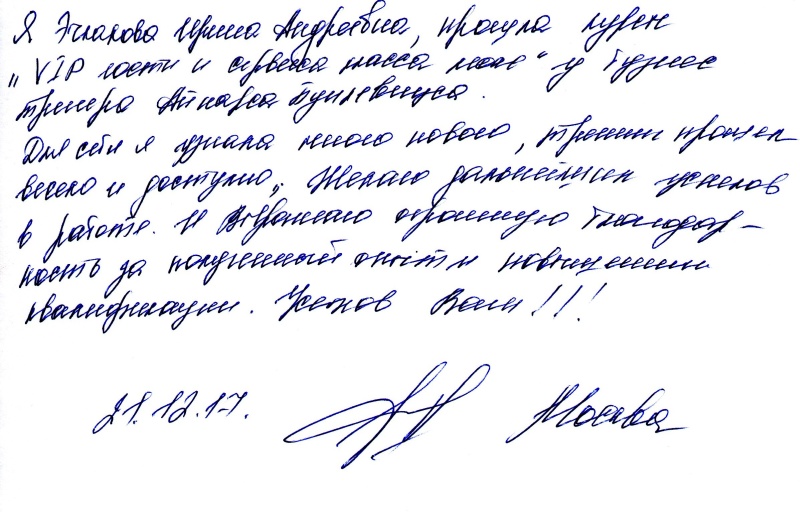 Я Ирина Андреевна, прошла курс
„VIP гости и сервиса класса люкс" у бизнес
тренера Айнарса Бункевичуса.
Для себя я узнала много нового, тренинг прошел
весело и доступно. Желаю дальнейших успехов
в работе. И выражаю огромную благодар-
ность за полученный опыт и повышении
квалификации. Успехов Вам!!!
21.12.17. Москва